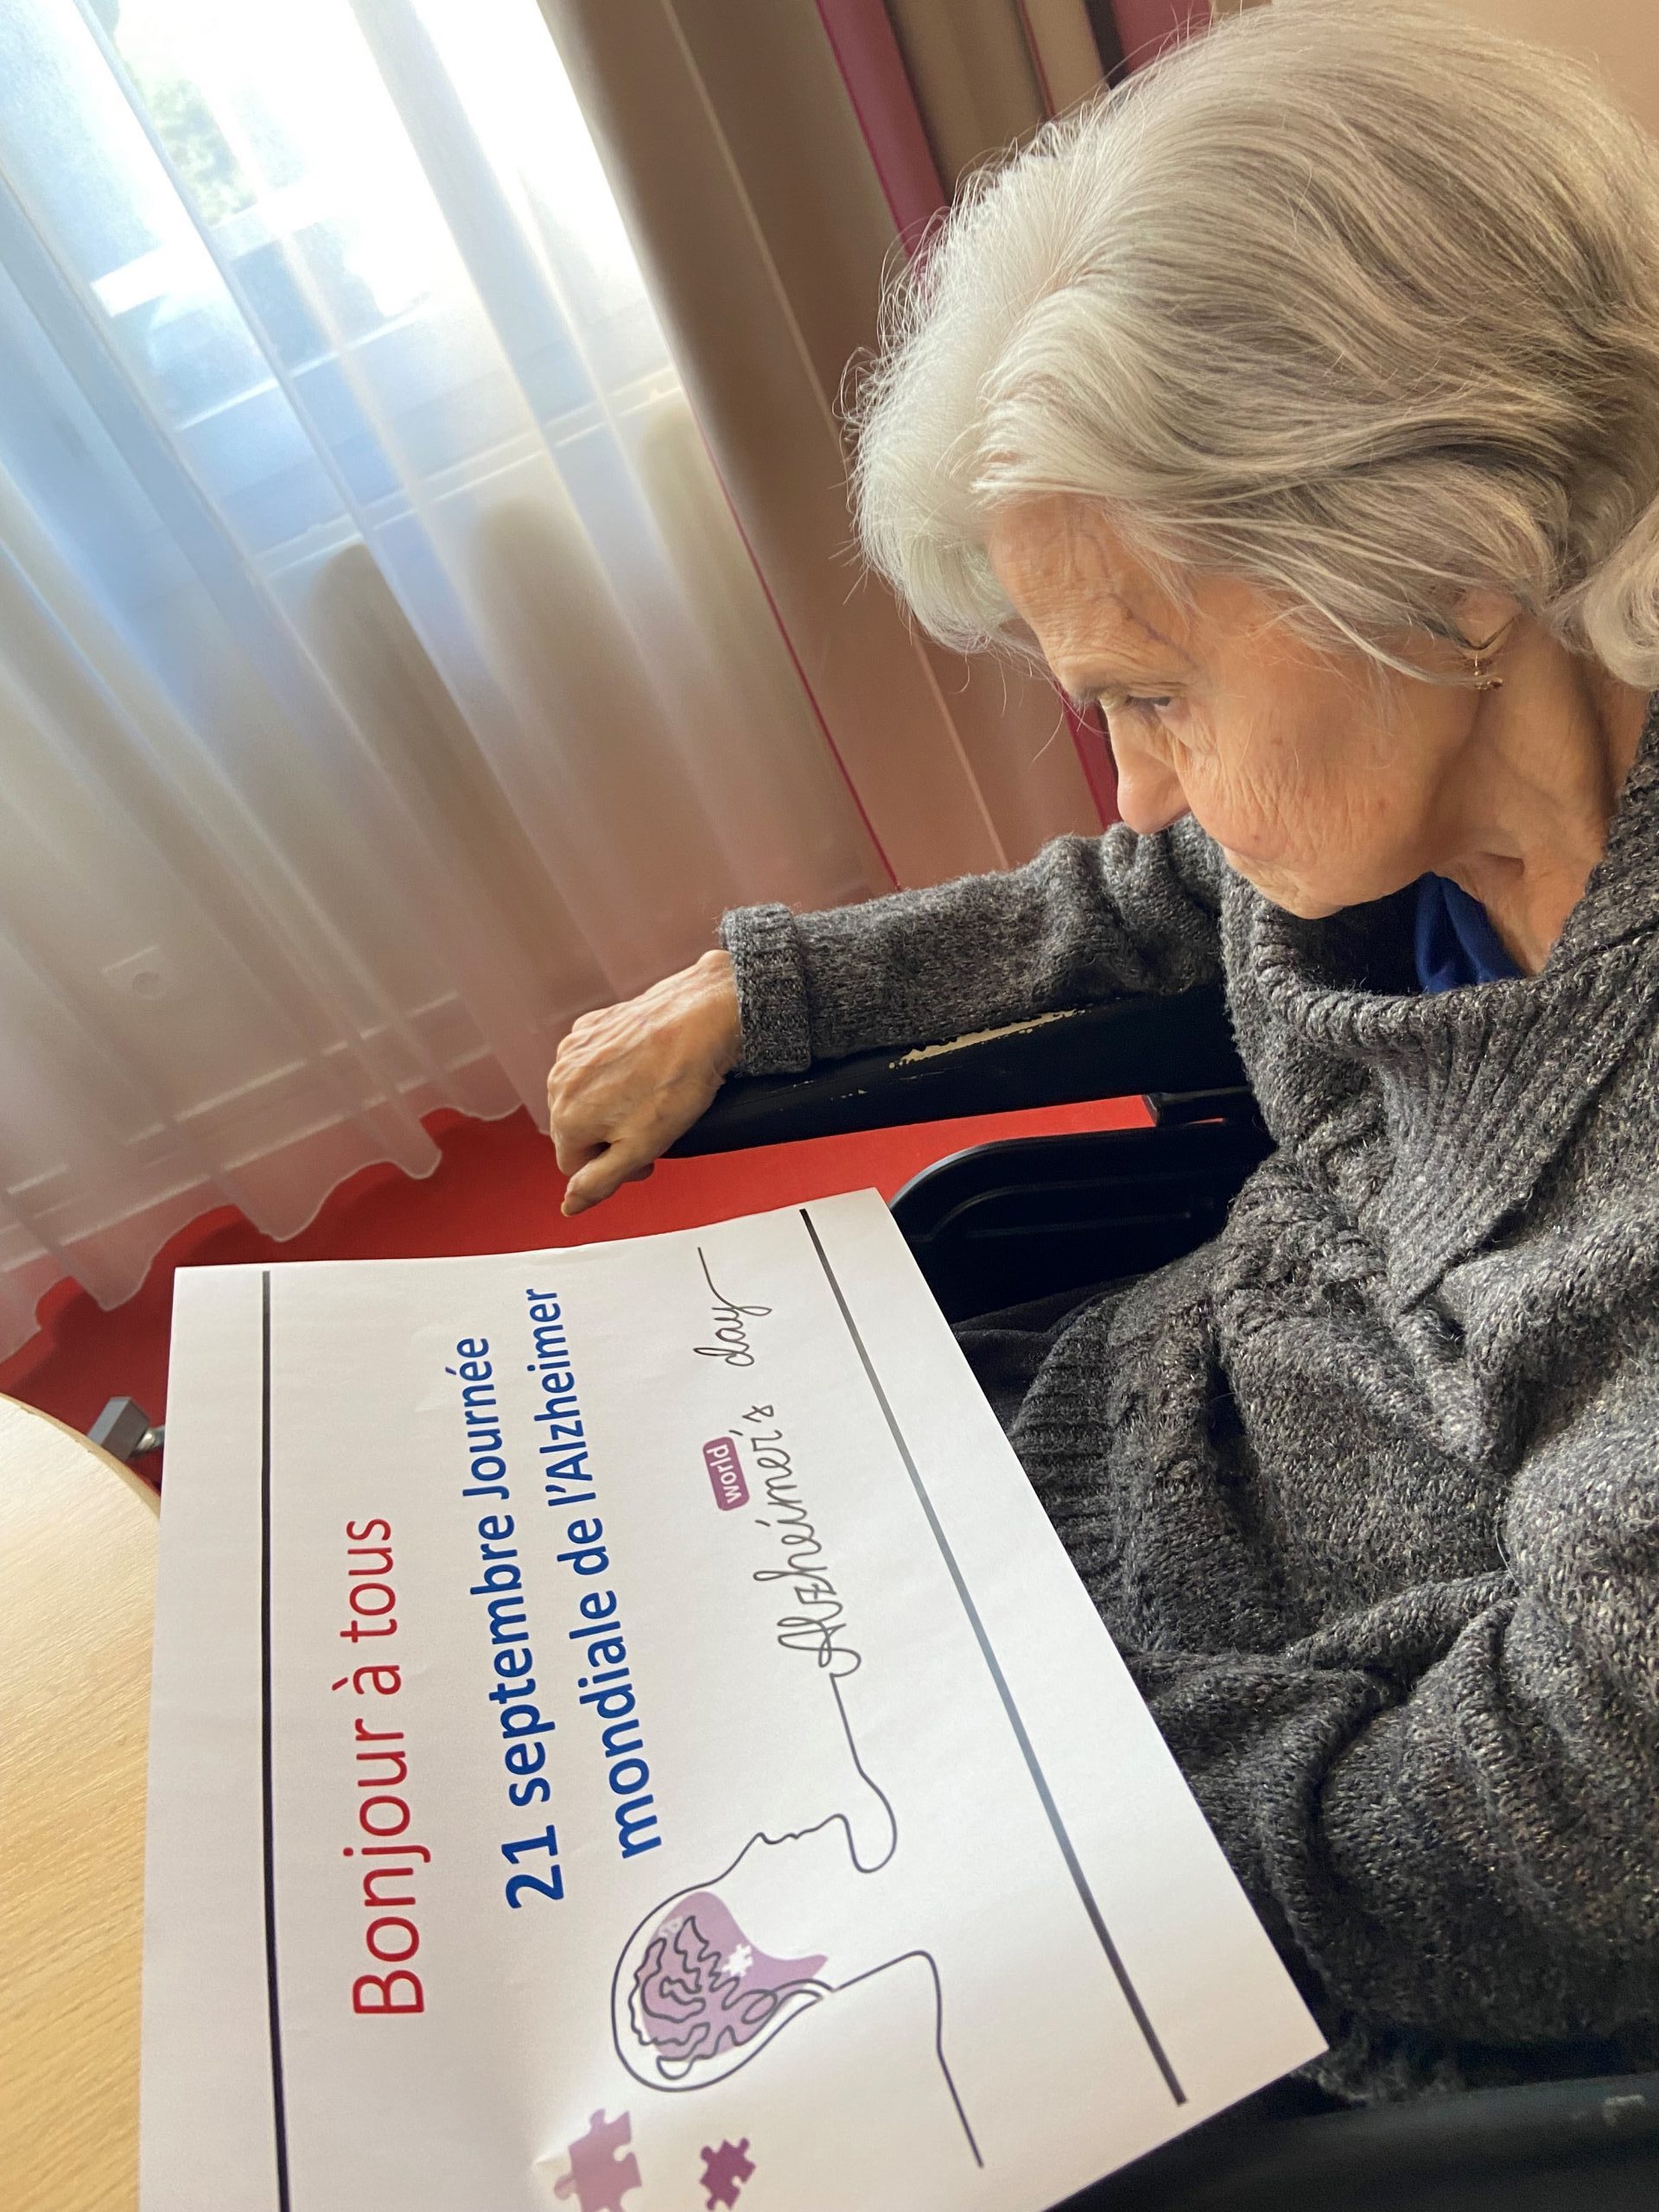 Bonjour à tous
21 septembre Journée
mondiale de l'Alzheimer
world
Alzheimer's day